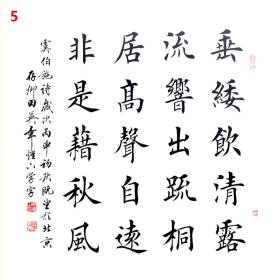 5
垂緌飲清露
流響出疏桐
居高聲自遠
非是藉秋風
虞伯施詩歲次丙申初秋既望於北京
存卿田英章惺六學書